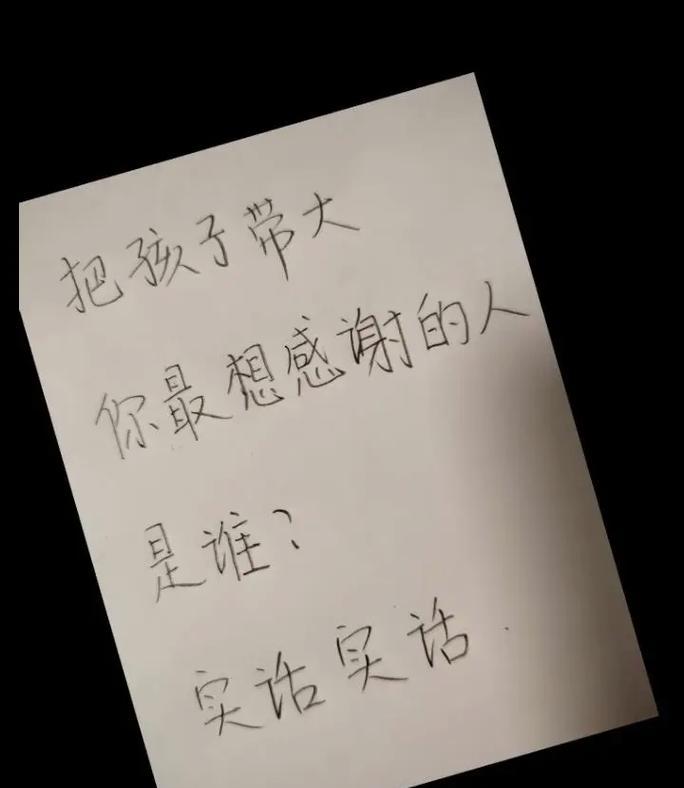 把孩子带大
你最想感谢的人
是谁？
实话实话.